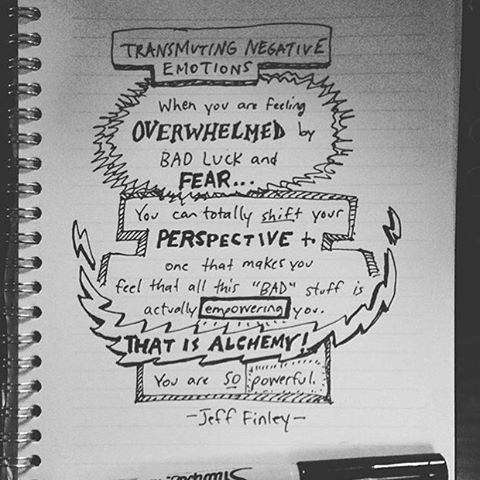 TRANSMUTING NEGATIVE
EMOTIONS
When you are feeling
OVERWHELMED by
BAD LUCK and
FEAR...
You can totally shift your
PERSPECTIVE to
one that makes you
feel that all this "BAD" stuff is
actually empowering you.
THAT IS ALCHEMY!
You are SO powerful.
-Jeff Finley-